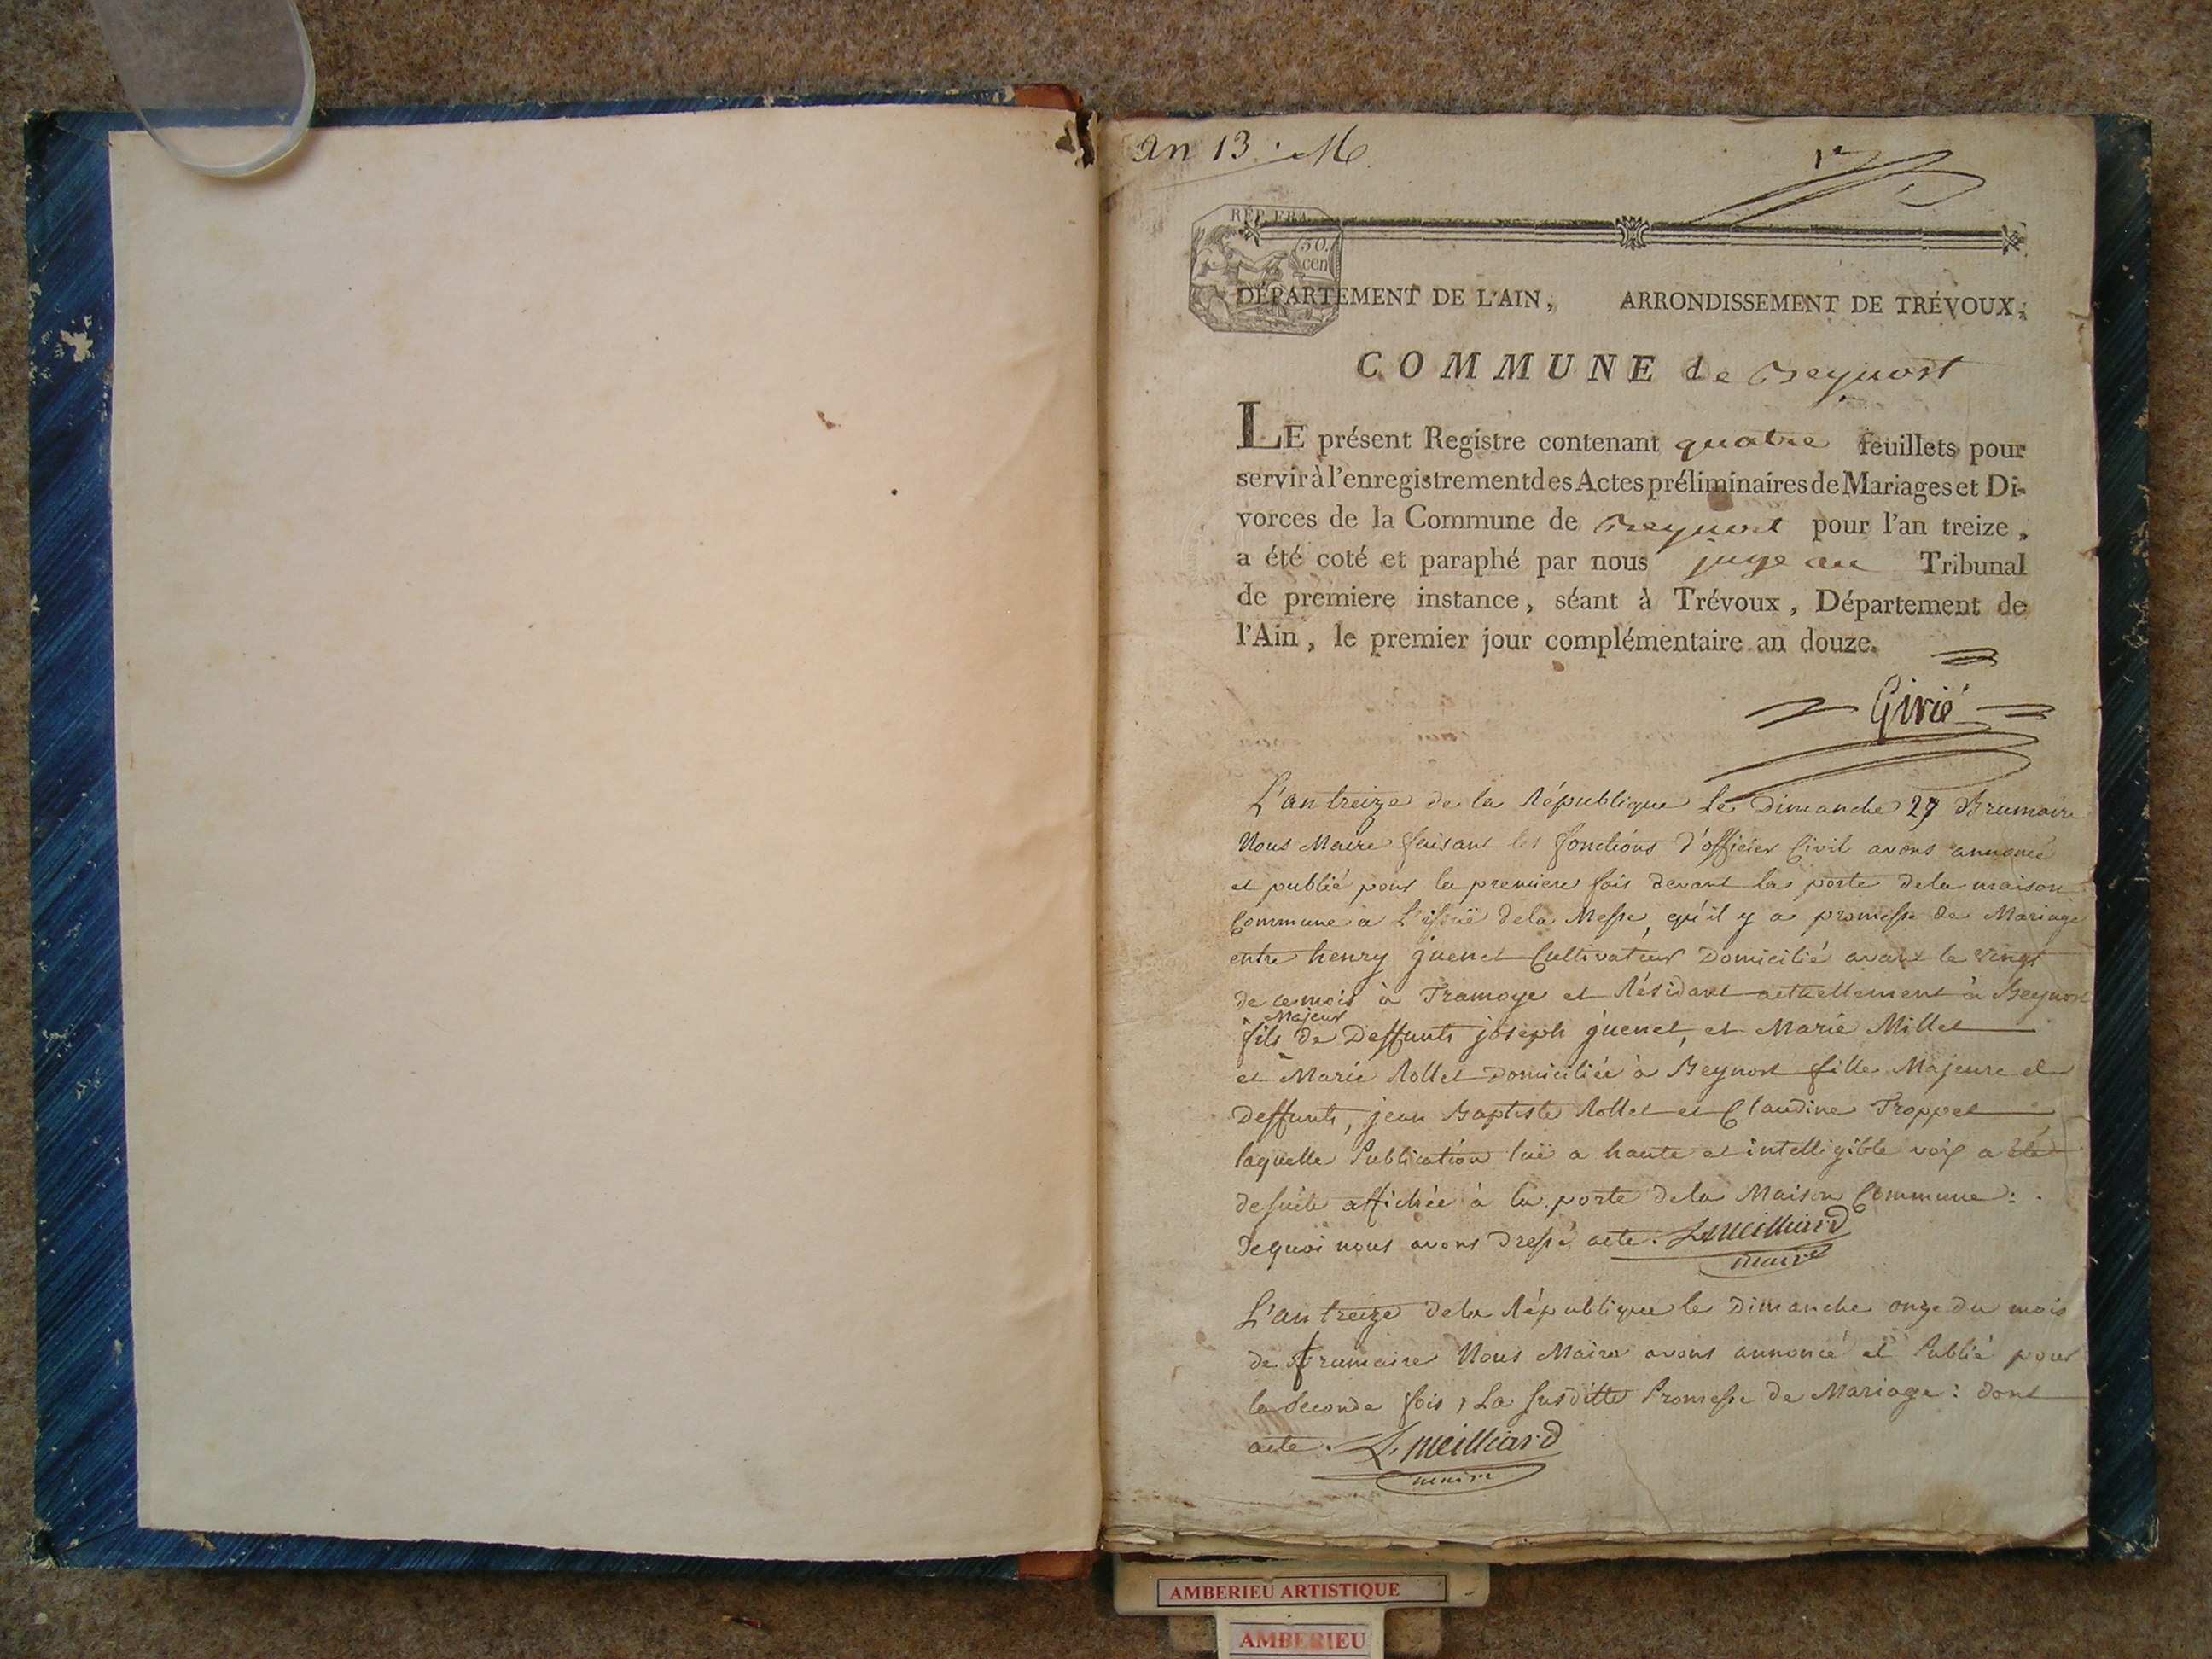 an 13. M
1er
REP. FRA.
50.
cen
DÉPARTEMENT DE L'AIN, ARRONDISSEMENT DE TRÉVOUX,
COMMUNE de Beynost
LE présent Registre contenant quatre feuillets pour
servir à l'enregistrement des Actes préliminaires de Mariages et Di-
vorces de la Commune de Beynost pour l'an treize,
a été coté et paraphé par nous juge au Tribunal
de premiere instance, séant à Trévoux, Département de
l'Ain, le premier jour complémentaire an douze.
Girié
L'an treize de la République le Dimanche 27 Brumaire
Nous Maire faisant les fonctions d'officier Civil avons annoncé
et publié pour la premiere fois devant la porte dela maison
Commune a L'issuë dela Messe, qu'il y a promesse de Mariage
entre henry guenet Cultivateur Domicilié avant le vingt
de ce mois à Tramoye et Résidant actuellement à Beynost
Majeur
fils de Deffunts joseph guenet, et Marie Millet
et Marie Rollet Domiciliée à Beynost fille Majeure de
Deffunts, jean Baptiste Rollet et Claudine Troppet
laquelle Publication luë a haute et intelligible voix a été
desuite affichée à la porte dela Maison Commune :
Dequoi nous avons Dressé acte. L. Meilliard
maire
L'an treize dela République le Dimanche onze du mois
de frumaire Nous Maire avons annoncé et Publié pour
la Seconde fois, La Susditte Promesse de Mariage : dont
acte. L. Meilliard
maire
AMBERIEU ARTISTIQUE
AMBERIEU